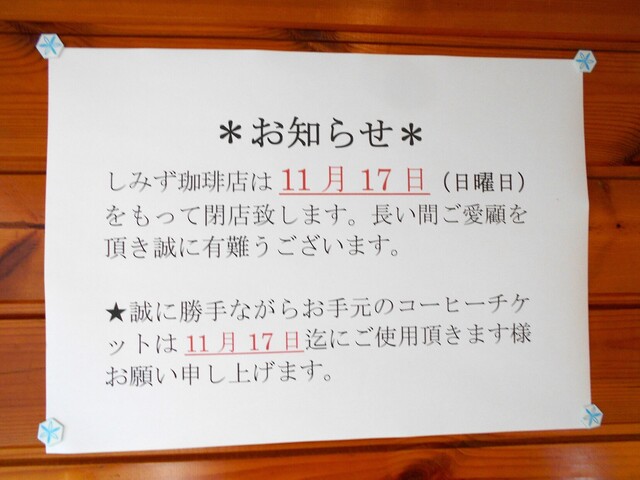 ＊お知らせ＊
しみず珈琲店は 11 月 17 日（日曜日）
をもって閉店致します。長い間ご愛顧を
頂き誠に有難うございます。
★誠に勝手ながらお手元のコーヒーチケ
ットは 11 月 17 日迄にご使用頂きます様
お願い申し上げます。